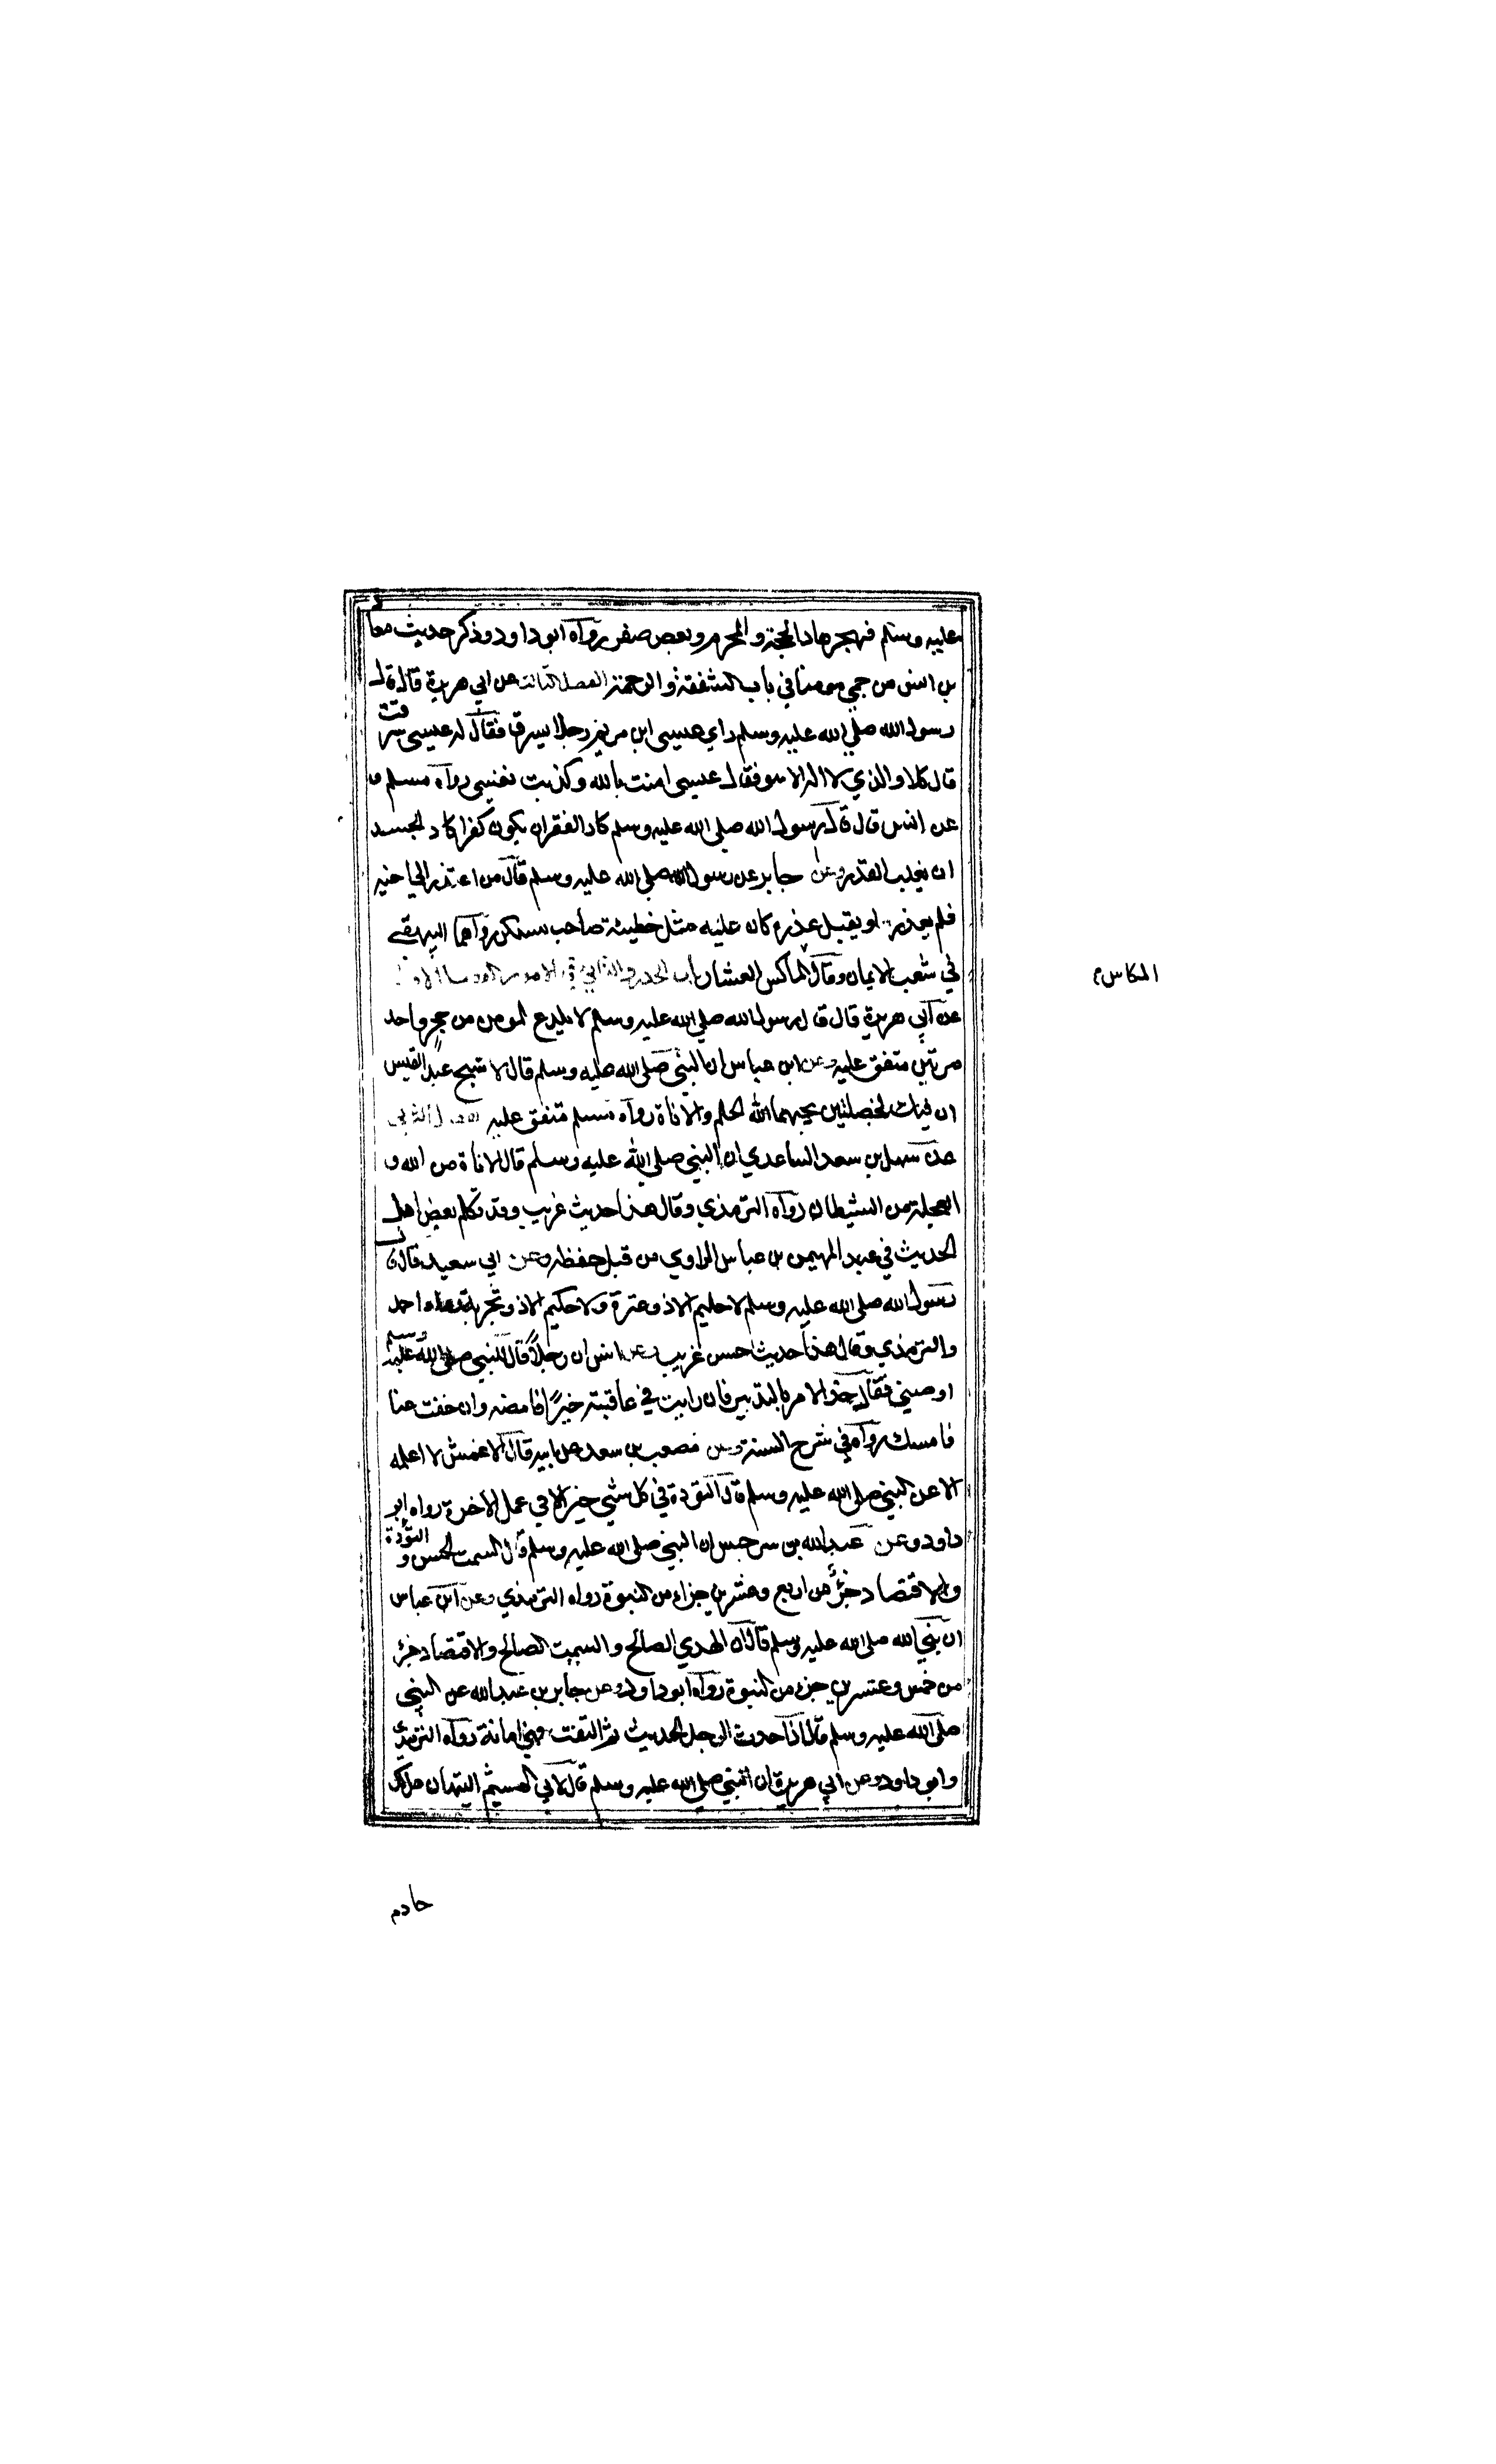 عليه وسلم فهجرها ذا الحجة والمحرم وبعض صفر رواه ابو داود وذكر حديث معاذ
بن انس من حمي مومنا في باب الشفقة والرحمة الفصل الثالث عن ابي هريرة قال قال
رسول الله صلي الله عليه وسلم راي عيسى ابن مريم رجلا يسرق فقال له عيسى سرقت
قال كلا والذي لا اله الا هو فقال عيسى امنت بالله وكذبت نفسي رواه مسلم و
عن انس قال قال رسول الله صلى الله عليه وسلم كاد الفقر ان يكون كفرا كاد الحسد
ان يغلب القدر وعن جابر عن رسول الله صلي الله عليه وسلم قال من اعتذر الي اخيه
فلم يعذره او يقبل عذره كان عليه مثل خطيئة صاحب مكس رواهما البيهقي
في شعب الايمان وقال الماكس العشار باب الحذر والتاني في الامور الفصل الاول
المكاس
عن ابي هريرة قال قال رسول الله صلي الله عليه وسلم لا يلدغ المومن من جحر واحد
مرتين متفق عليه وعن ابن عباس ان النبي صلى الله عليه وسلم قال لاشبح عبد القيس
ان فيك لخصلتين يحبهما الله الحلم والاناة رواه مسلم متفق عليه الفصل الثاني
عن سهل بن سعد الساعدي ان النبي صلى الله عليه وسلم قال الاناة من الله و
العجلة من الشيطان رواه الترمذي وقال هذا حديث غريب وقد تكلم بعض اهل
الحديث في عبد المهيمن بن عباس الراوي من قبل حفظه وعن ابي سعيد قال قال
رسول الله صلى الله عليه وسلم لا حليم الا ذو عثرة ولا حكيم الا ذو تجربة رواه احمد
والترمذي وقال هذا حديث حسن غريب وعن انس ان رجلاً قال للنبي صلى الله عليه وسلم
اوصني فقال خذ الامر بالتدبير فان رايت في عاقبته خيرًا فامضه وان خفت
فامسك رواه في شرح السنة وعن مصعب بن سعد عن ابيه قال الاعمش لا اعلمه
الا عن النبي صلى الله عليه وسلم قال التؤدة في كل شي خير الا في عمل الاخرة رواه ابو
داود وعن عبد الله بن سرجس ان النبي صلى الله عليه وسلم قال السمت الحسن و التؤدة
والاقتصاد جزء من اربع وعشرين جزاء من النبوة رواه الترمذي وعن ابن عباس
ان نبي الله صلى الله عليه وسلم قال ان الهدي الصالح والسمت الصالح والاقتصاد جزء
من خمس وعشرين جزء من النبوة رواه ابو داود وعن جابر بن عبد الله عن النبي
صلى الله عليه وسلم قال اذا حدث الرجل الحديث ثم التفت فهي امانة رواه الترمذي
وابو داود وعن ابي هريرة ان النبي صلى الله عليه وسلم قال لابي الهيثم التيهان هل لك
خادم